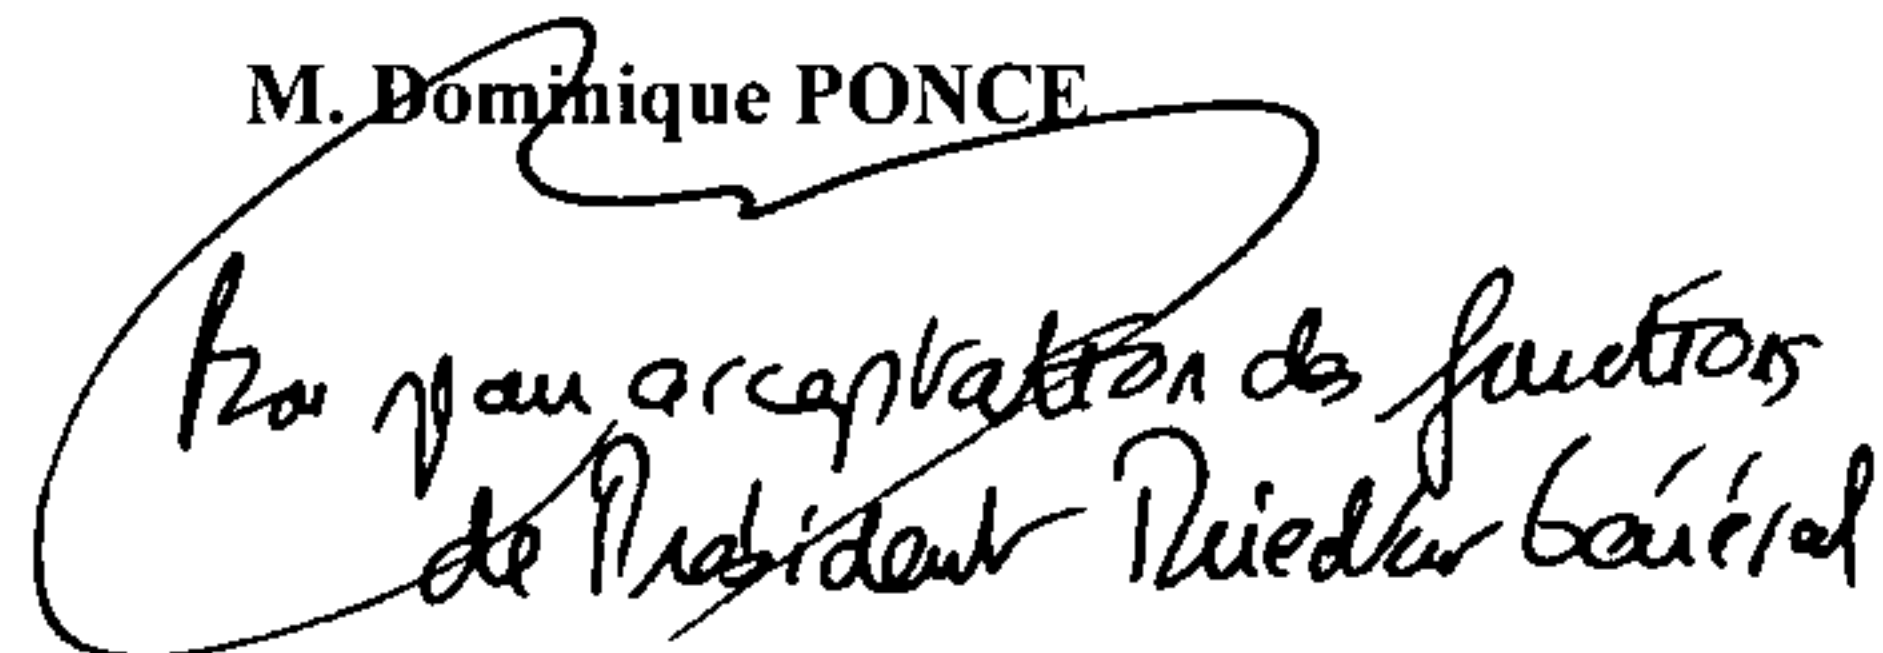 M. Dominique PONCE
Bon pour acceptation des fonctions
de Président Directeur Général